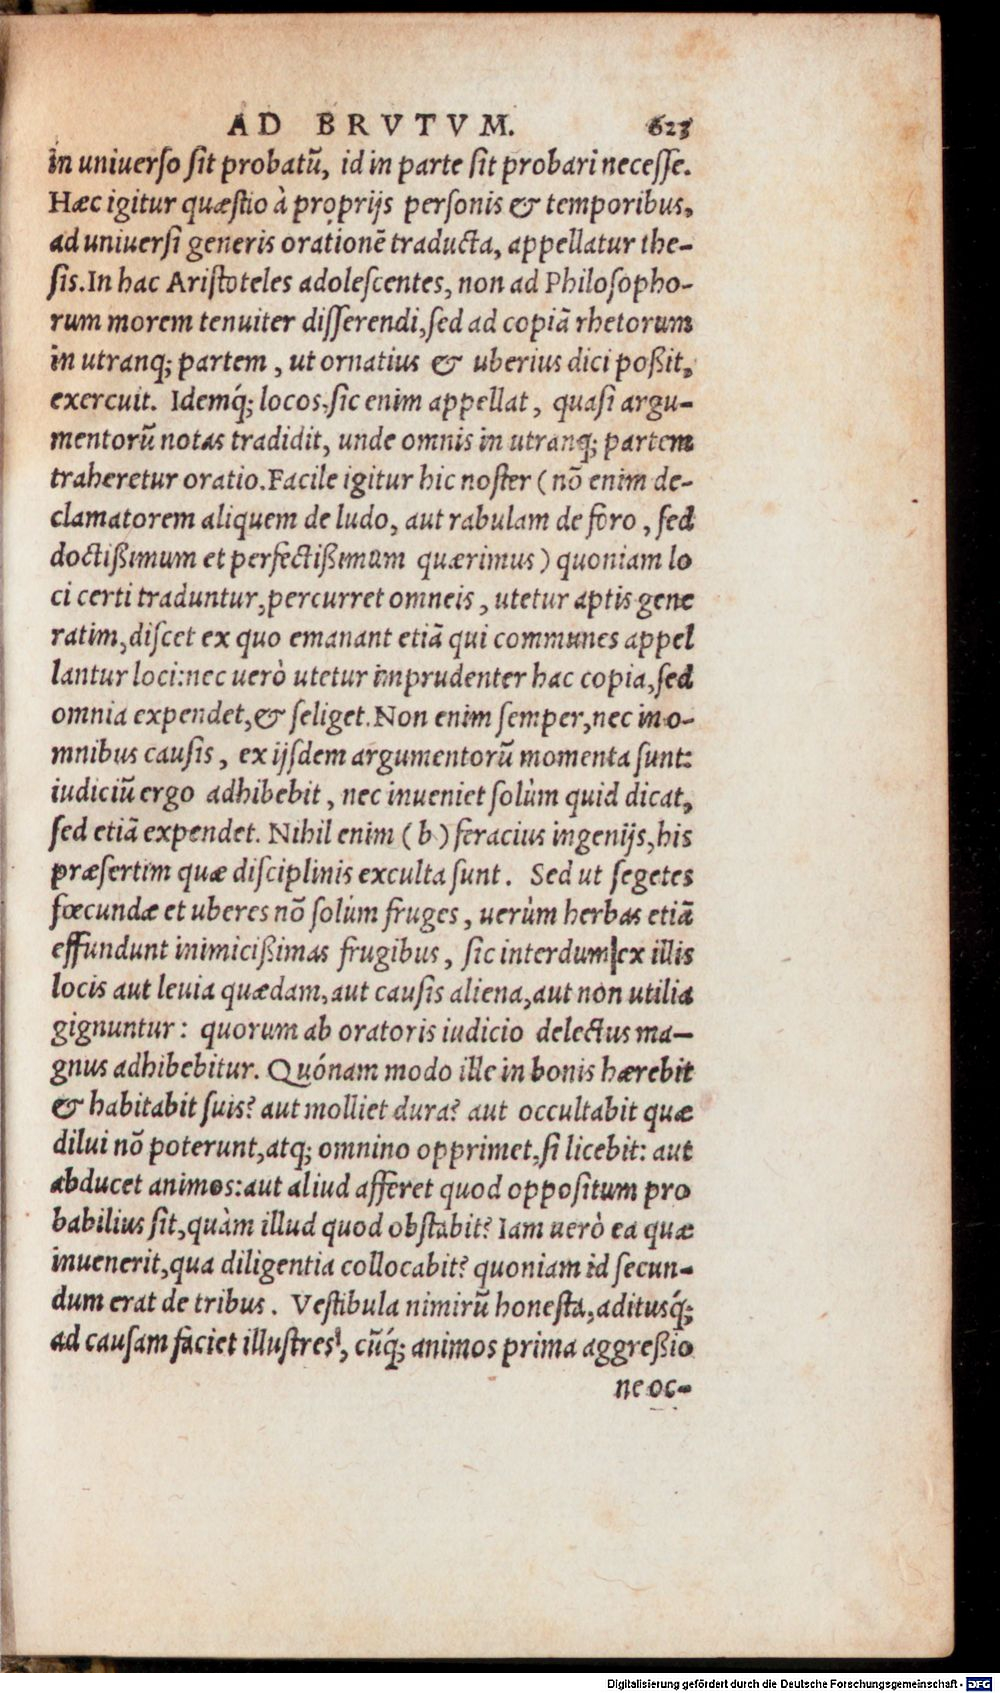 AD BRVTVM. 623
in uniuerso sit probatũ, id in parte sit probari necesse.
Hæc igitur quæstio à proprijs personis & temporibus,
ad uniuersi generis orationẽ traducta, appellatur the-
sis. In hac Aristoteles adolescentes, non ad Philosopho-
rum morem tenuiter disserendi, sed ad copiã rhetorum
in utranq; partem, ut ornatius & uberius dici poßit,
exercuit. Idemq́; locos. sic enim appellat, quasi argu-
mentorũ notas tradidit, unde omnis in utranq; partem
traheretur oratio. Facile igitur hic noster (nõ enim de-
clamatorem aliquem de ludo, aut rabulam de foro, sed
doctißimum et perfectißimum quærimus) quoniam lo
ci certi traduntur, percurret omneis, utetur aptis gene
ratim, discet ex quo emanant etiã qui communes appel
lantur loci: nec uerò utetur imprudenter hac copia, sed
omnia expendet, & seliget. Non enim semper, nec in o-
mnibus causis, ex ijsdem argumentorũ momenta sunt:
iudiciũ ergo adhibebit, nec inueniet solùm quid dicat,
sed etiã expendet. Nihil enim (b) feracius ingenijs, his
præsertim quæ disciplinis exculta sunt. Sed ut segetes
fœcundæ et uberes nõ solùm fruges, uerùm herbas etiã
effundunt inimicißimas frugibus, sic interdum ex illis
locis aut leuia quædam, aut causis aliena, aut non utilia
gignuntur: quorum ab oratoris iudicio delectus ma-
gnus adhibebitur. Quónam modo ille in bonis hærebit
& habitabit suis? aut molliet dura? aut occultabit quæ
dilui nõ poterunt, atq; omnino opprimet, si licebit: aut
abducet animos: aut aliud afferet quod oppositum pro
babilius sit, quàm illud quod obstabit? Iam uerò ea quæ
inuenerit, qua diligentia collocabit? quoniam id secun-
dum erat de tribus. Vestibula nimirũ honesta, aditusq́;
ad causam faciet illustres, cũq́; animos prima aggreßio
ne oc-
Digitalisierung gefördert durch die Deutsche Forschungsgemeinschaft - DFG